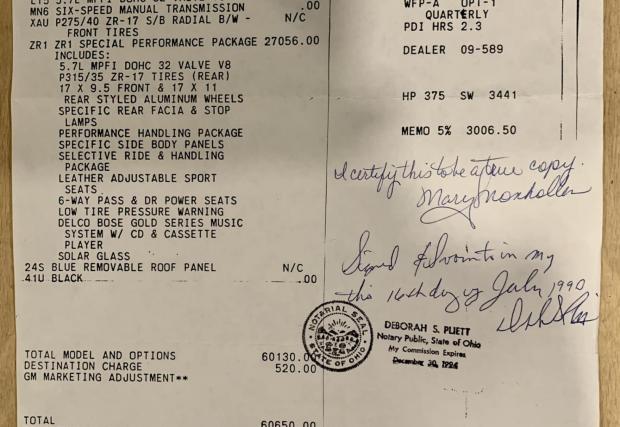 MN6 SIX-SPEED MANUAL TRANSMISSION .00
XAU P275/40 ZR-17 S/B RADIAL B/W - N/C
FRONT TIRES
ZR1 ZR1 SPECIAL PERFORMANCE PACKAGE 27056.00
INCLUDES:
5.7L MPFI DOHC 32 VALVE V8
P315/35 ZR-17 TIRES (REAR)
17 X 9.5 FRONT & 17 X 11
REAR STYLED ALUMINUM WHEELS
SPECIFIC REAR FACIA & STOP
LAMPS
PERFORMANCE HANDLING PACKAGE
SPECIFIC SIDE BODY PANELS
SELECTIVE RIDE & HANDLING
PACKAGE
LEATHER ADJUSTABLE SPORT
SEATS
6-WAY PASS & DR POWER SEATS
LOW TIRE PRESSURE WARNING
DELCO BOSE GOLD SERIES MUSIC
SYSTEM W/ CD & CASSETTE
PLAYER
SOLAR GLASS
24S BLUE REMOVABLE ROOF PANEL N/C
41U BLACK .00
TOTAL MODEL AND OPTIONS 60130.00
DESTINATION CHARGE 520.00
GM MARKETING ADJUSTMENT**
TOTAL 60650.00
WFP-A OPT-1
QUARTERLY
PDI HRS 2.3
DEALER 09-589
HP 375 SW 3441
MEMO 5% 3006.50
I certify this to be a true copy.
Mary
Signed & in my
this 16th day of July, 1990
NOTARIAL SEAL
STATE OF OHIO
DEBORAH S. PLIETT
Notary Public, State of Ohio
My Commission Expires
December 30, 1994